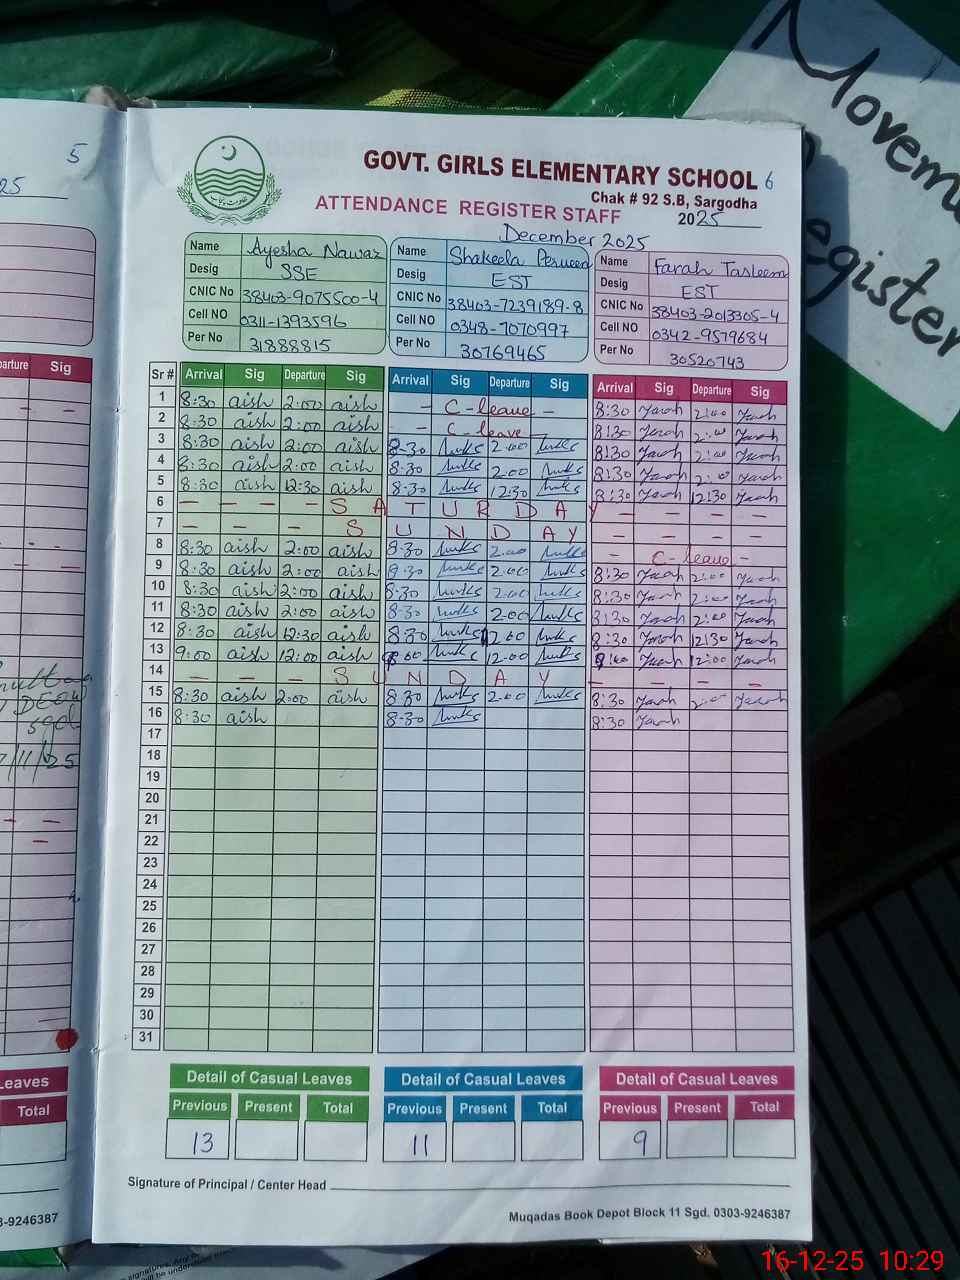 5
25
Movem
Register
GOVT. GIRLS ELEMENTARY SCHOOL 6
Chak # 92 S.B, Sargodha
ATTENDANCE REGISTER STAFF 2025
December 2025
Name Ayesha Nawaz Name Shakeela Perveen Name Farah Tasleem
Desig SSE Desig EST Desig EST
CNIC No 38403-9075500-4 CNIC No 38403-7239189-8 CNIC No 38403-2013305-4
Cell NO 0311-1393596 Cell NO 0348-7070997 Cell NO 0342-9579684
Per No 31888815 Per No 30769465 Per No 30520743
parture Sig
Sr # Arrival Sig Departure Sig Arrival Sig Departure Sig Arrival Sig Departure Sig
1 8:30 aish 2:00 aish – C-leave – 8:30 Farah 2:00 Farah
2 8:30 aish 2:00 aish – C-leave – 8:30 Farah 2:00 Farah
3 8:30 aish 2:00 aish 8-30 2-00 8:30 Farah 2:00 Farah
4 8:30 aish 2:00 aish 8-30 2:00 8:30 Farah 2:00 Farah
5 8:30 aish 12:30 aish 8-30 12:30 8:30 Farah 12:30 Farah
6 – – – – S A T U R D A Y – – – –
7 – – – S U N D A Y – – – –
8 8:30 aish 2:00 aish 8-30 2:00 – C-leave –
9 8:30 aish 2:00 aish 8:30 2:00 8:30 Farah 2:00 Farah
10 8:30 aish 2:00 aish 8-30 2:00 8:30 Farah 2:00 Farah
11 8:30 aish 2:00 aish 8-30 2:00 8:30 Farah 2:00 Farah
12 8:30 aish 12:30 aish 8:30 8:30 Farah 12:30 Farah
13 9:00 aish 12:00 aish 12:00 Farah 12:00 Farah
14 – – – S U N D A Y – – – –
15 8:30 aish 2:00 aish 8:30 2:00 8:30 Farah 2:00 Farah
16 8:30 aish 8-30 8:30 Farah
DEO
sgd
7/11/25
17
18
19
20
21
22
23
24
25
26
27
28
29
30
31
Leaves
Total
Detail of Casual Leaves Detail of Casual Leaves Detail of Casual Leaves
Previous Present Total Previous Present Total Previous Present Total
13 11 9
Signature of Principal / Center Head
Muqadas Book Depot Block 11 Sgd. 0303-9246387
3-9246387
16-12-25 10:29